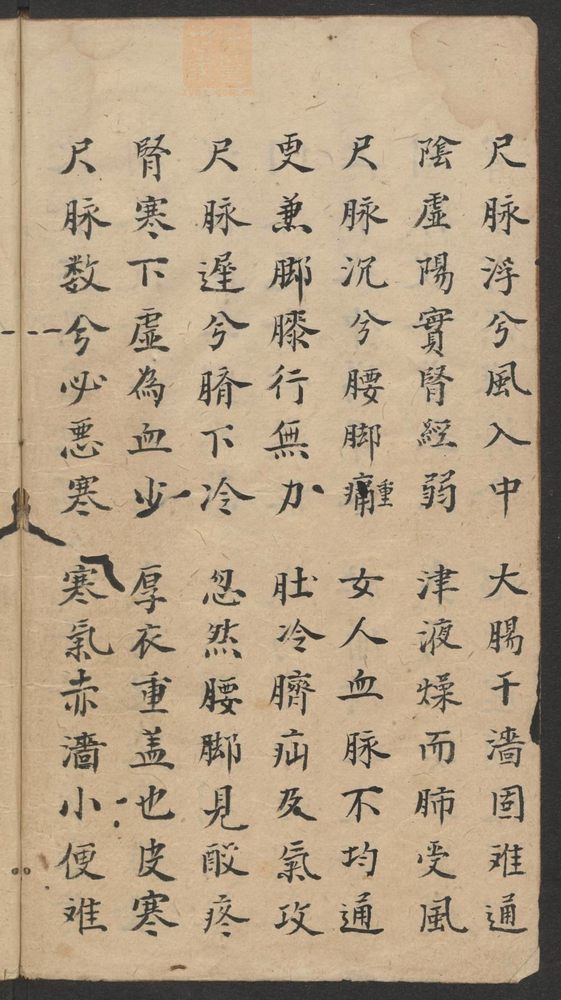 尺脉浮兮風入中 大腸干濇固难通
陰虛陽實腎經弱 津液燥而肺受風
尺脉沉兮腰脚痛重 女人血脉不均通
更兼脚膝行無力 肚冷臍疝及氣攻
尺脉遲兮臍下冷 忽然腰脚見酸疼
腎寒下虛為血少 厚衣重盖也皮寒
尺脉数兮必悪寒 寒氣赤濇小便难